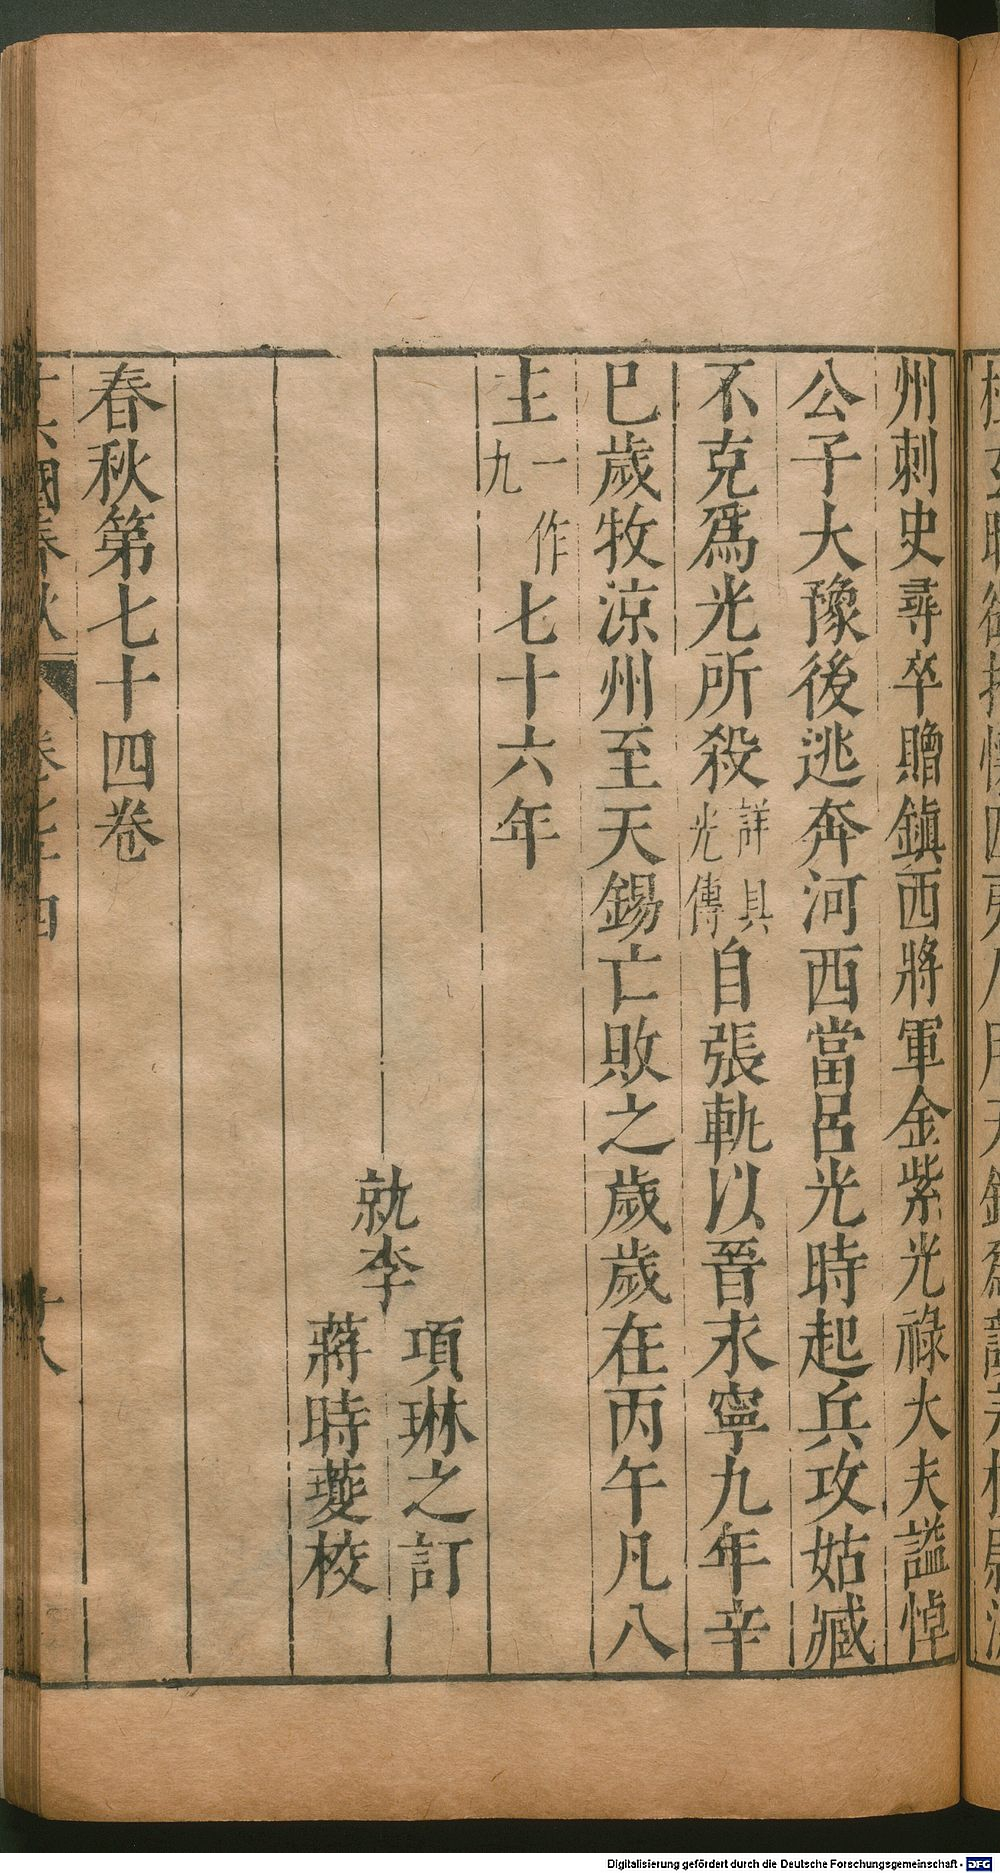 州刺史尋卒贈鎮西將軍金紫光祿大夫謚悼
公子大豫後逃奔河西當呂光時起兵攻姑臧
不克爲光所殺詳具光傳自張軌以晉永寧九年辛
巳歲牧涼州至天錫亡敗之歲歲在丙午凡八
主一作九七十六年
就李
項琳之訂
蔣時䕫校
春秋第七十四卷
十六國春秋 卷七十四
Digitalisierung gefördert durch die Deutsche Forschungsgemeinschaft - DFG